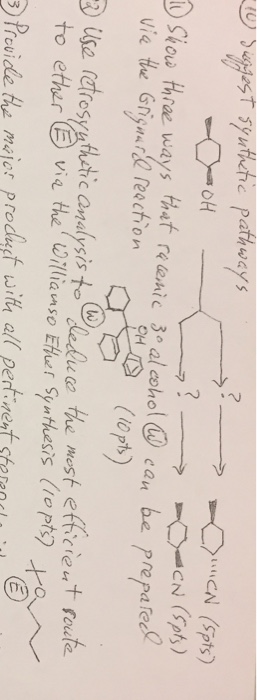 (10) Suggest synthetic pathways
OH
?
CN (5pts)
?
CN (5pts)
(11) Show three ways that racemic 3° alcohol (W) can be prepared
via the Grignard reaction
OH
(W)
(10pts)
Use retrosynthetic analysis to deduce the most efficient route
to ether (E) via the Williamso Ether Synthesis (10pts)
O
(E)
3 Provide the major product with all pertinent